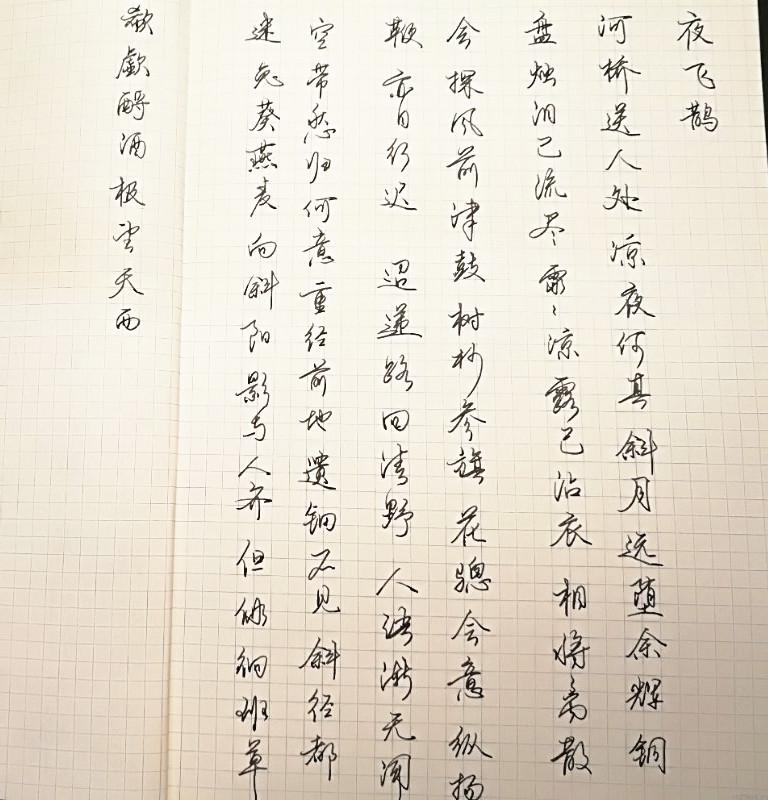 夜飞鹊
河桥送人处凉夜何其 斜月远堕余辉铜
盘烛泪已流尽霏々凉露已沾衣 相将离散
会探风前津鼓树杪参旗花骢会意纵扬
鞭亦自行迟 迢递路回清野 人语渐无闻
空带愁归何意重经前地遗钿不见 斜径都
迷兔葵燕麦向斜阳影与人齐但徘徊班草
欷歔酹酒极望天西